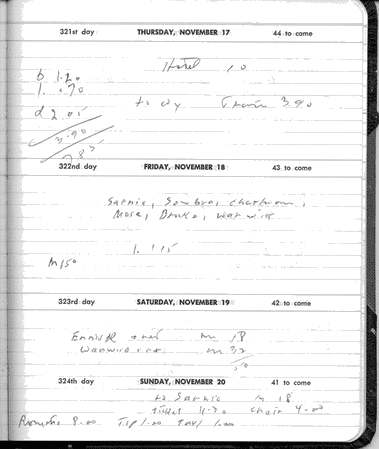 321st day THURSDAY, NOVEMBER 17 44 to come
Hotel 10
b 1.20
1. .70
to Wy Train 3.90
d 2.05
3.90
7.85
322nd day FRIDAY, NOVEMBER 18 43 to come
Sarnia, Sombra, Chatham,
Mose, Drake, Warwick
1. 1.15
M 150
323rd day SATURDAY, NOVEMBER 19 42 to come
m 18
m 32
324th day SUNDAY, NOVEMBER 20 41 to come
to Sarnia m 18
Ticket Chair 4.00
8.00 Tip 1.00 Taxi 1.00